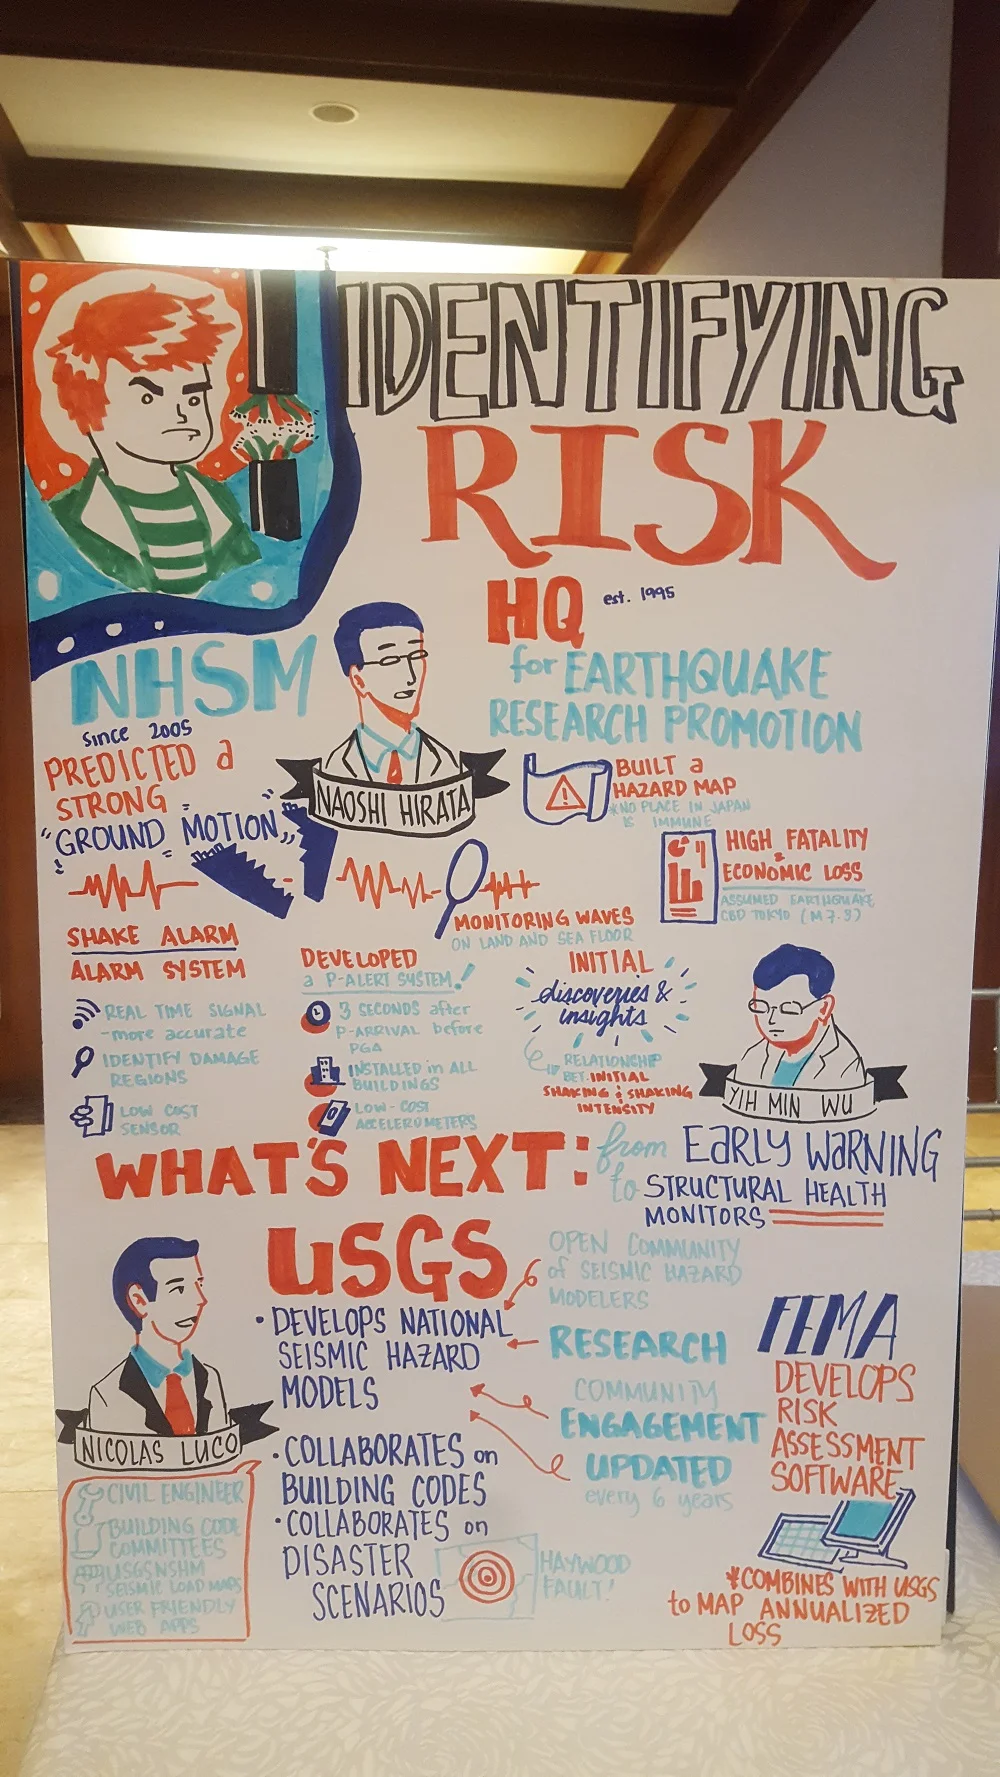 IDENTIFYING
RISK
HQ est. 1995
for EARTHQUAKE
RESEARCH PROMOTION
NHSM
since 2005
PREDICTED a
STRONG
"GROUND MOTION"
NAOSHI HIRATA
BUILT a
HAZARD MAP
*NO PLACE IN JAPAN
IS IMMUNE
HIGH FATALITY
&
ECONOMIC LOSS
ASSUMED EARTHQUAKE
CBD TOKYO (M7.3)
MONITORING WAVES
ON LAND AND SEA FLOOR
SHAKE ALARM
ALARM SYSTEM
REAL TIME SIGNAL
-more accurate
IDENTIFY DAMAGE
REGIONS
LOW COST
SENSOR
DEVELOPED
a P-ALERT SYSTEM!
3 SECONDS after
P-ARRIVAL before
PGA
INSTALLED in ALL
BUILDINGS
LOW-COST
ACCELEROMETERS
INITIAL
discoveries &
insights
RELATIONSHIP
BET. INITIAL
SHAKING & SHAKING
INTENSITY
YIH MIN WU
WHAT'S NEXT:
from EARLY WARNING
to STRUCTURAL HEALTH
MONITORS
USGS
• DEVELOPS NATIONAL
SEISMIC HAZARD
MODELS
• COLLABORATES on
BUILDING CODES
• COLLABORATES on
DISASTER
SCENARIOS
OPEN COMMUNITY
of SEISMIC HAZARD
MODELERS
RESEARCH
COMMUNITY
ENGAGEMENT
UPDATED
every 6 years
HAYWOOD
FAULT!
NICOLAS LUCO
CIVIL ENGINEER
BUILDING CODE
COMMITTEES
USGS NSHM
SEISMIC LOAD MAPS
USER FRIENDLY
WEB APPS
FEMA
DEVELOPS
RISK
ASSESSMENT
SOFTWARE
*COMBINES WITH USGS
to MAP ANNUALIZED
LOSS